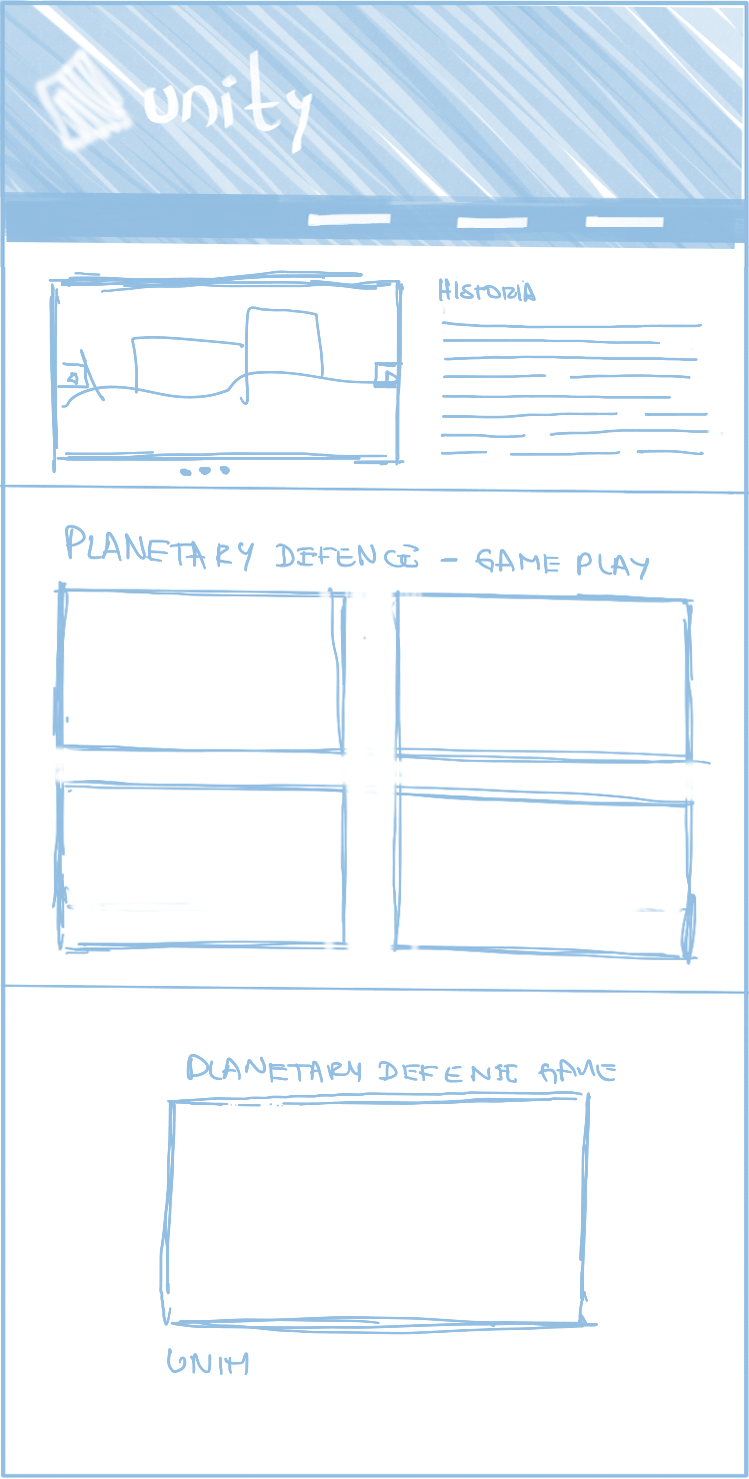 unity
HISTORIA
PLANETARY DEFENCE - GAME PLAY
PLANETARY DEFENSE GAME
UNITY